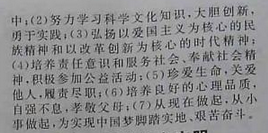 中;(2)努力学习科学文化知识,大胆创新,
勇于实践;(3)弘扬以爱国主义为核心的民
族精神和以改革创新为核心的时代精神;
(4)培养责任意识和服务社会、奉献社会精
神,积极参加公益活动;(5)珍爱生命,关爱
他人,履责尽职;(6)培养良好的心理品质,
自强不息,孝敬父母;(7)从现在做起,从小
事做起,为实现中国梦脚踏实地、艰苦奋斗。